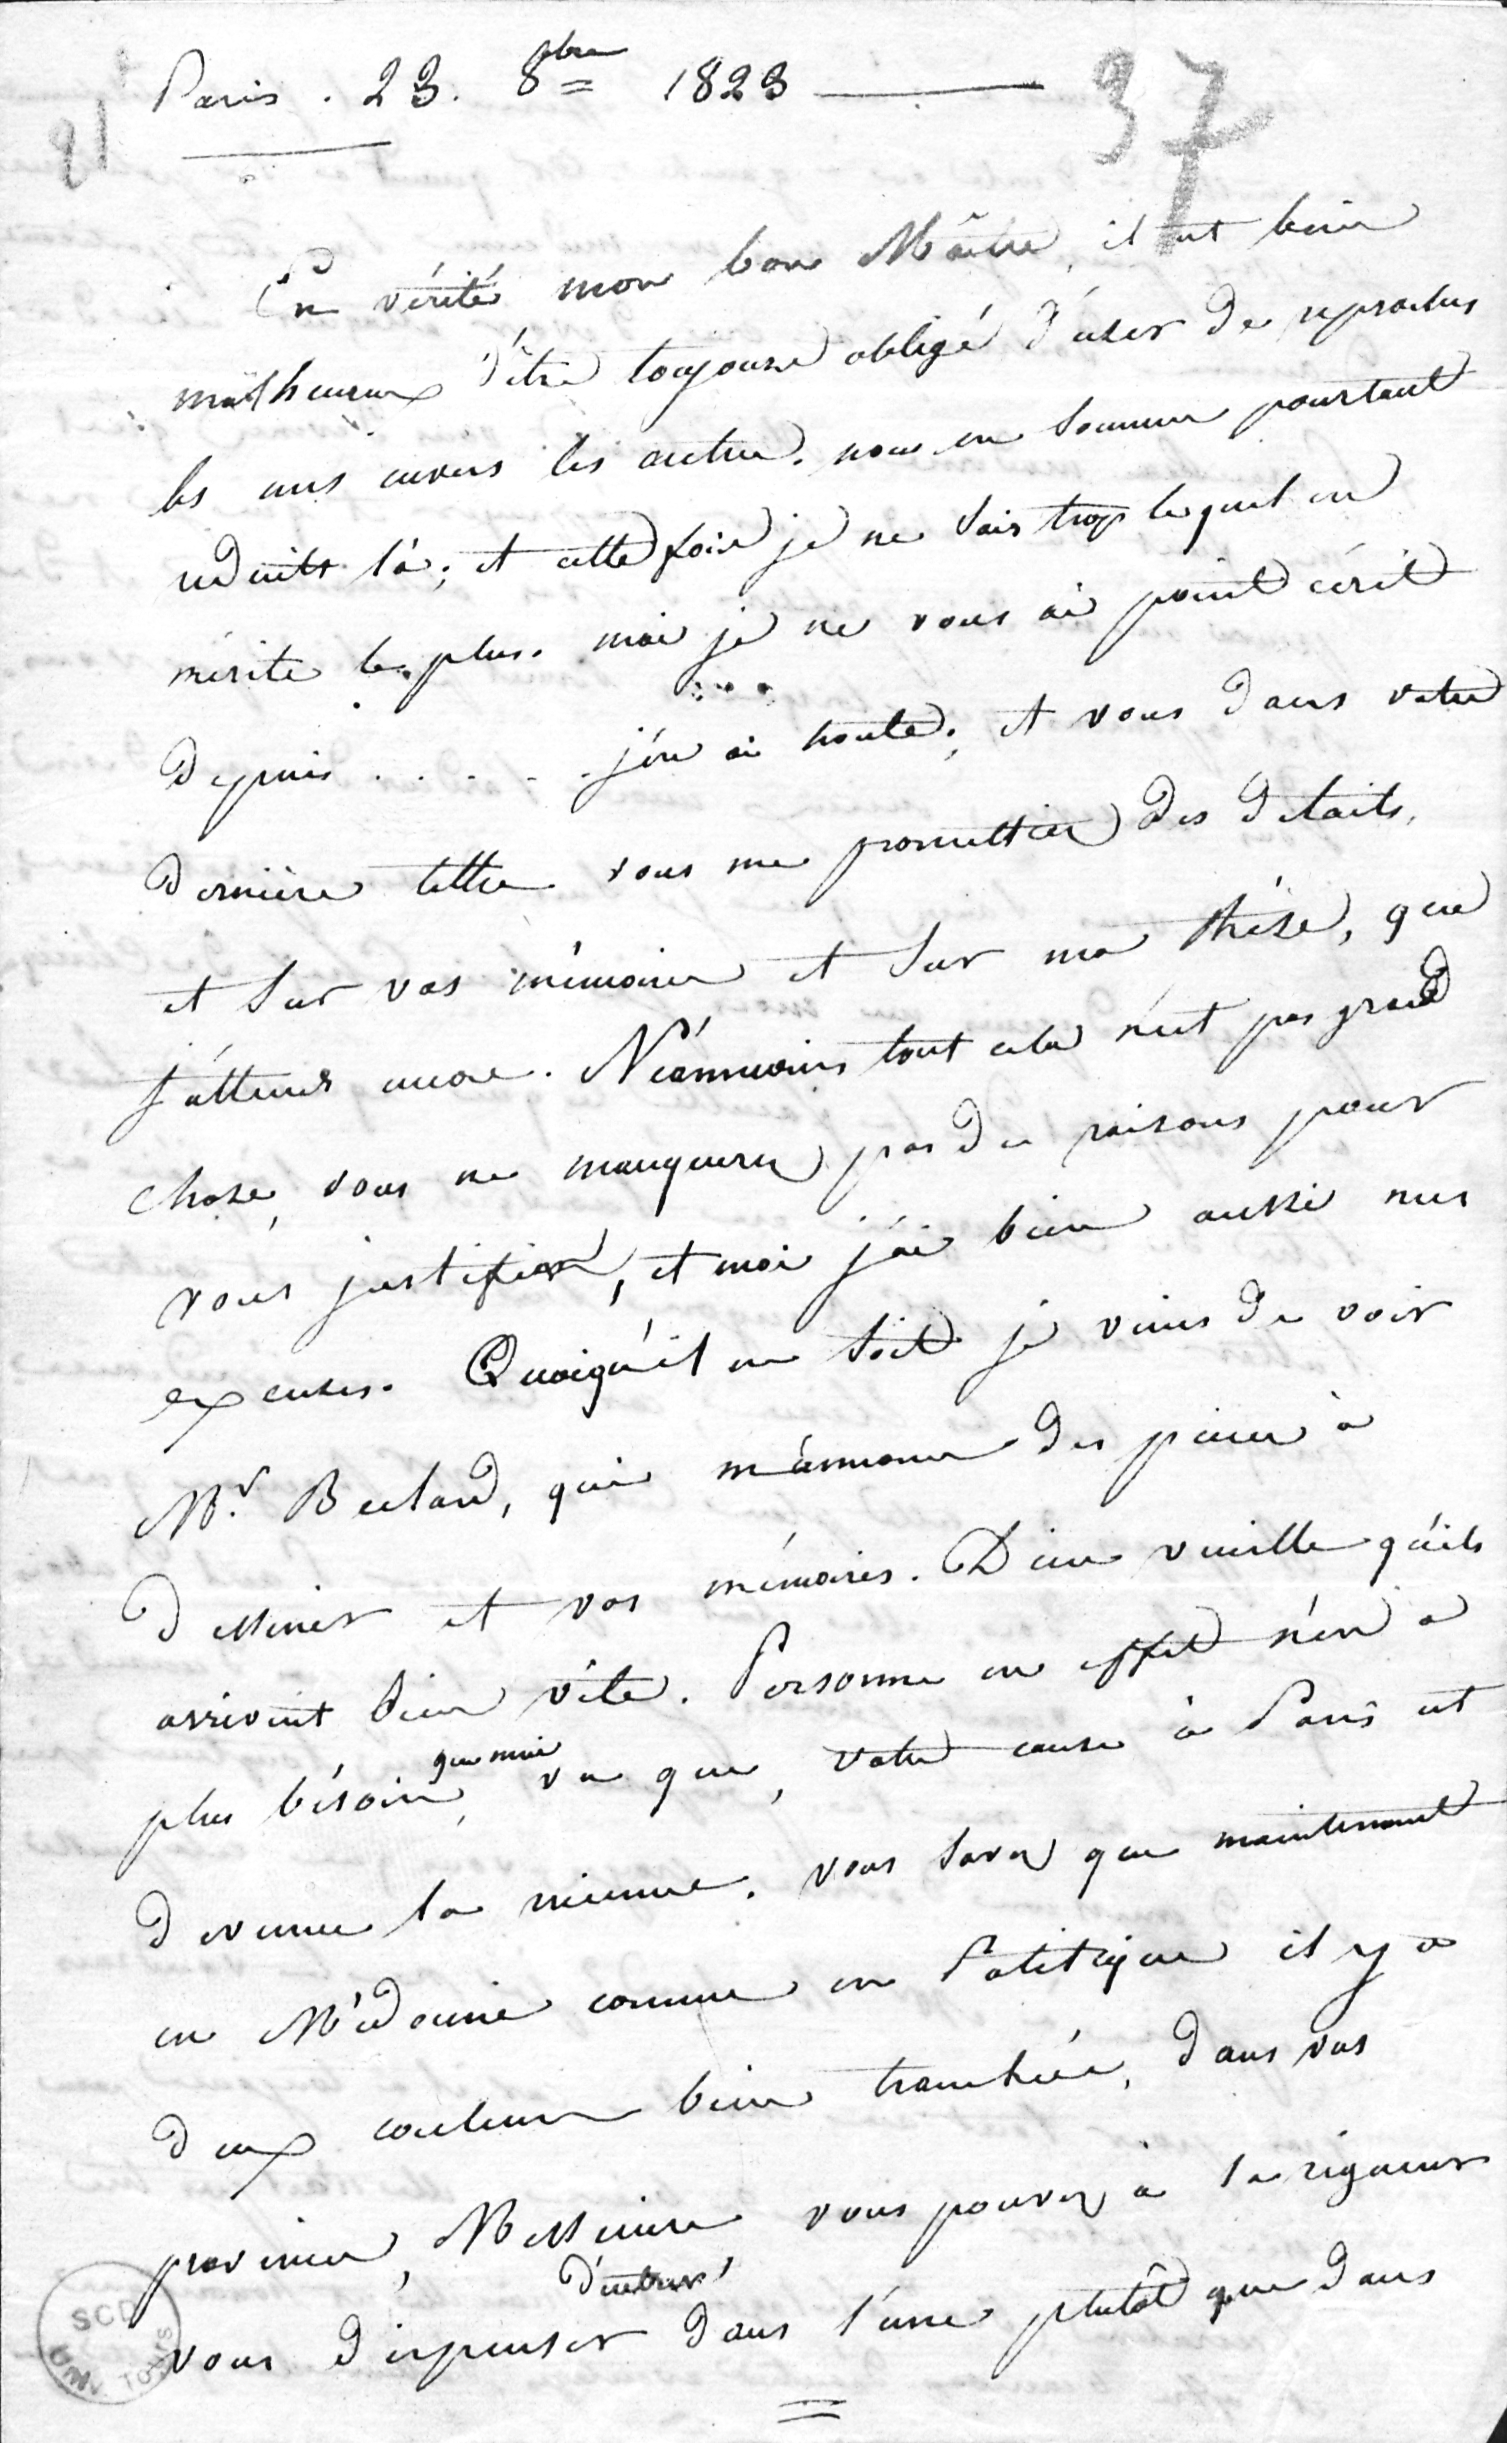 Paris . 23. 8bre 1823
37
21
En vérité mon bon Maître, il est bien
malheureux d'être toujours obligé d'user de reproches
les uns envers les autres. nous en sommes pourtant
reduits là; et cette fois je ne sais trop lequel en
mérite le plus. moi je ne vous ai point écrit
depuis . . . . . j'en ai honte; et vous dans votre
dernière lettre vous me promettiez des détails,
et sur vos mémoires et sur ma thèse, que
j'attends encore. Néanmoins tout cela n'est pas grand
chose, vous ne manquerez pas de raisons pour
vous justifier, et moi j'ai bien aussi mes
excuses. Quoiqu'il en soit je viens de voir
Mr. Beclard, qui m'annonce des pièces à
dessiner et vos mémoires. Dieu veuille qu'ils
arrivent bien vite. Personne en effet n'en a
plus bésoin que moi, vu que, votre cause à Paris est
devenue la mienne. vous savez que maintenant
en Médecine comme en Politique il y a
deux couleurs bien tranchées, dans vos
provinces, Messieurs vous pouvez à la rigueur
vous dispenser d'entrer dans l'une plutôt que dans
SCD
UNIV. TOURS